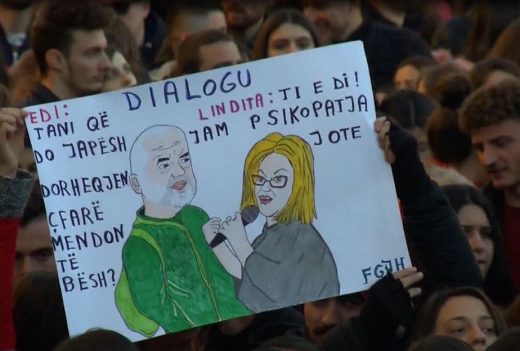 DIALOGU
EDI:
TANI QË
DO JAPËSH
DORHEQJEN
ÇFARË
MENDON
TË
BËSH?
LINDITA: TI E DI!
JAM PSIKOPATJA
JOTE
FGJH